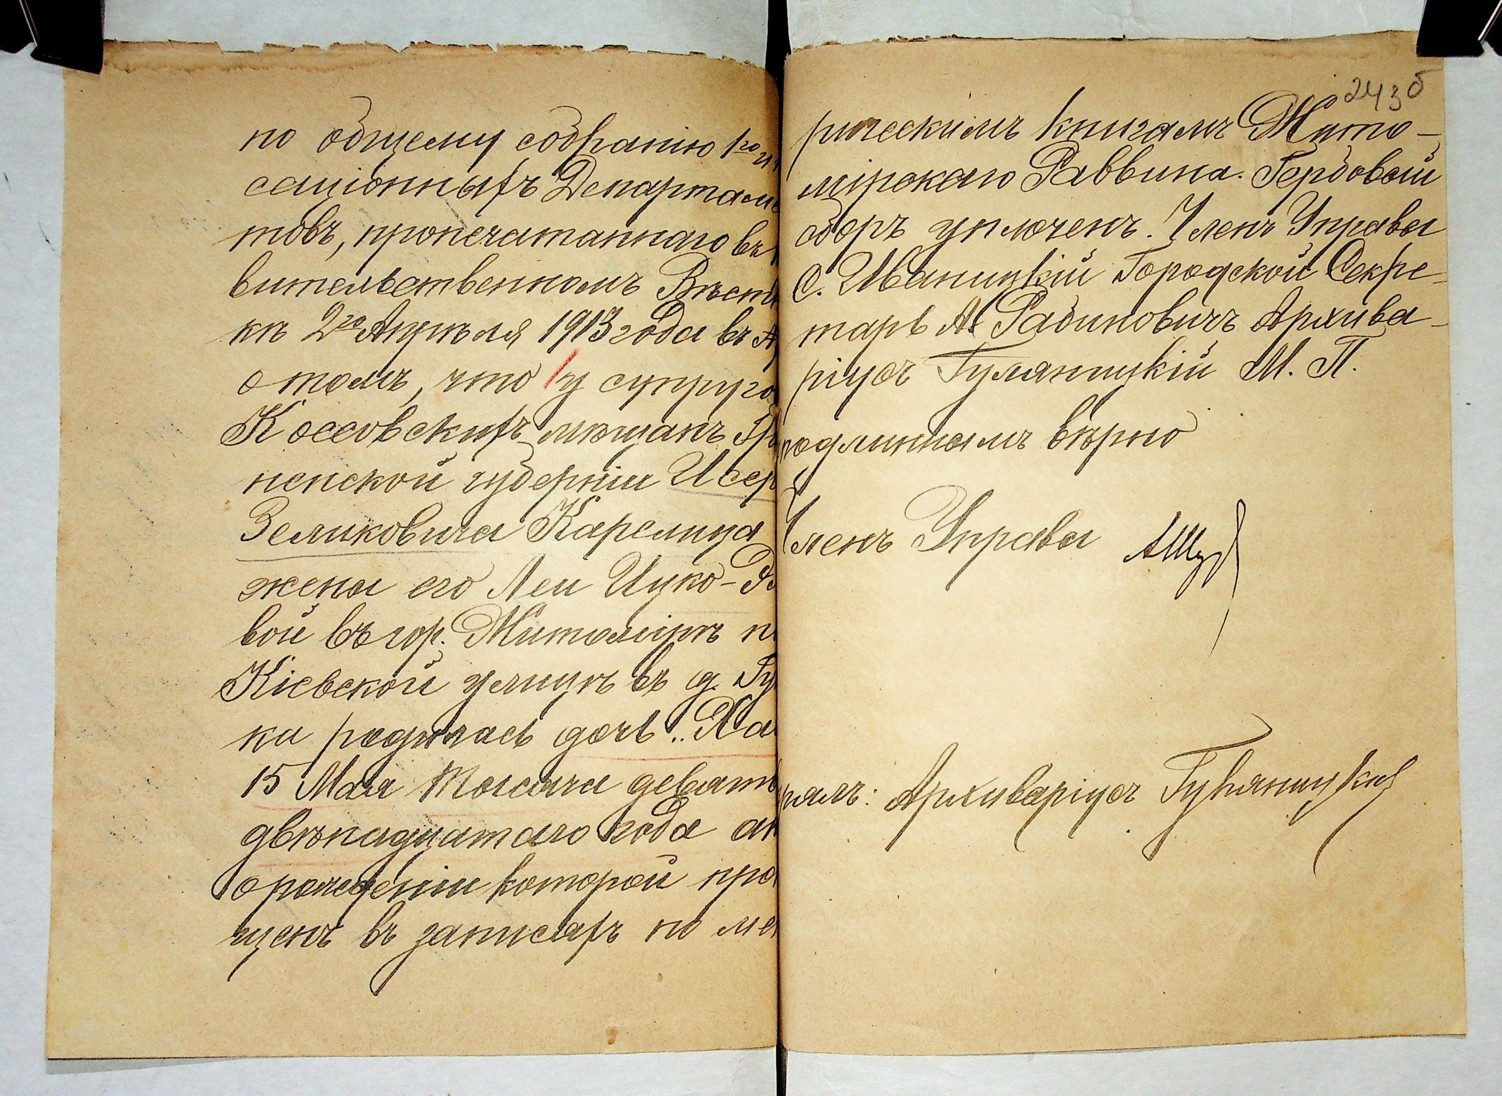 по общему собранію 1го и
саціонныхъ Департаме
товъ, пропечатаннаго въ
вительственномъ Вѣстн
кѣ 2го Апрѣля 1913 года въ
о томъ, что у супруго
Коссовскихъ мѣщанъ Гр
ненской губерніи Исер
Зеликовича Карелица
жены его Леи Ицко-
вой въ гор. Житомірѣ п
Кіевской улицѣ въ д. Гу
ка родилась дочь "Ха
15 Мая тысяча девять
двѣнадцатаго года ак
о рожденіи которой про
щенъ въ записяхъ по ме
243б
рическимъ книгамъ Жито-
мірскаго Раввина. Гербовой
сборъ уплоченъ. Членъ Управы
С. Иваницкій Городской Секре-
тарь А. Рабиновичъ Архива-
ріусъ Гуляницкій М. П.
подлиннымъ вѣрно
Членъ Управы
рялъ: Архиваріусъ Гуляницкій